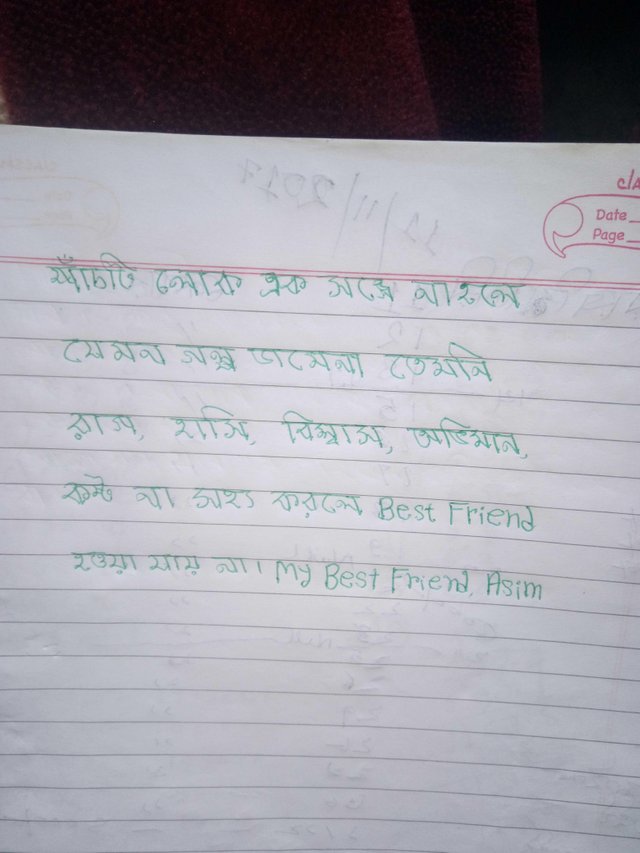 cla
Date
Page
পাঁচটি লোক এক সঙ্গে নাহলে
যেমন গল্প জমেনা তেমনি
রাগ, হাসি, বিশ্বাস, অভিমান,
কষ্ট না সহ্য করলে Best Friend
হওয়া যায় না। My Best Friend, Asim